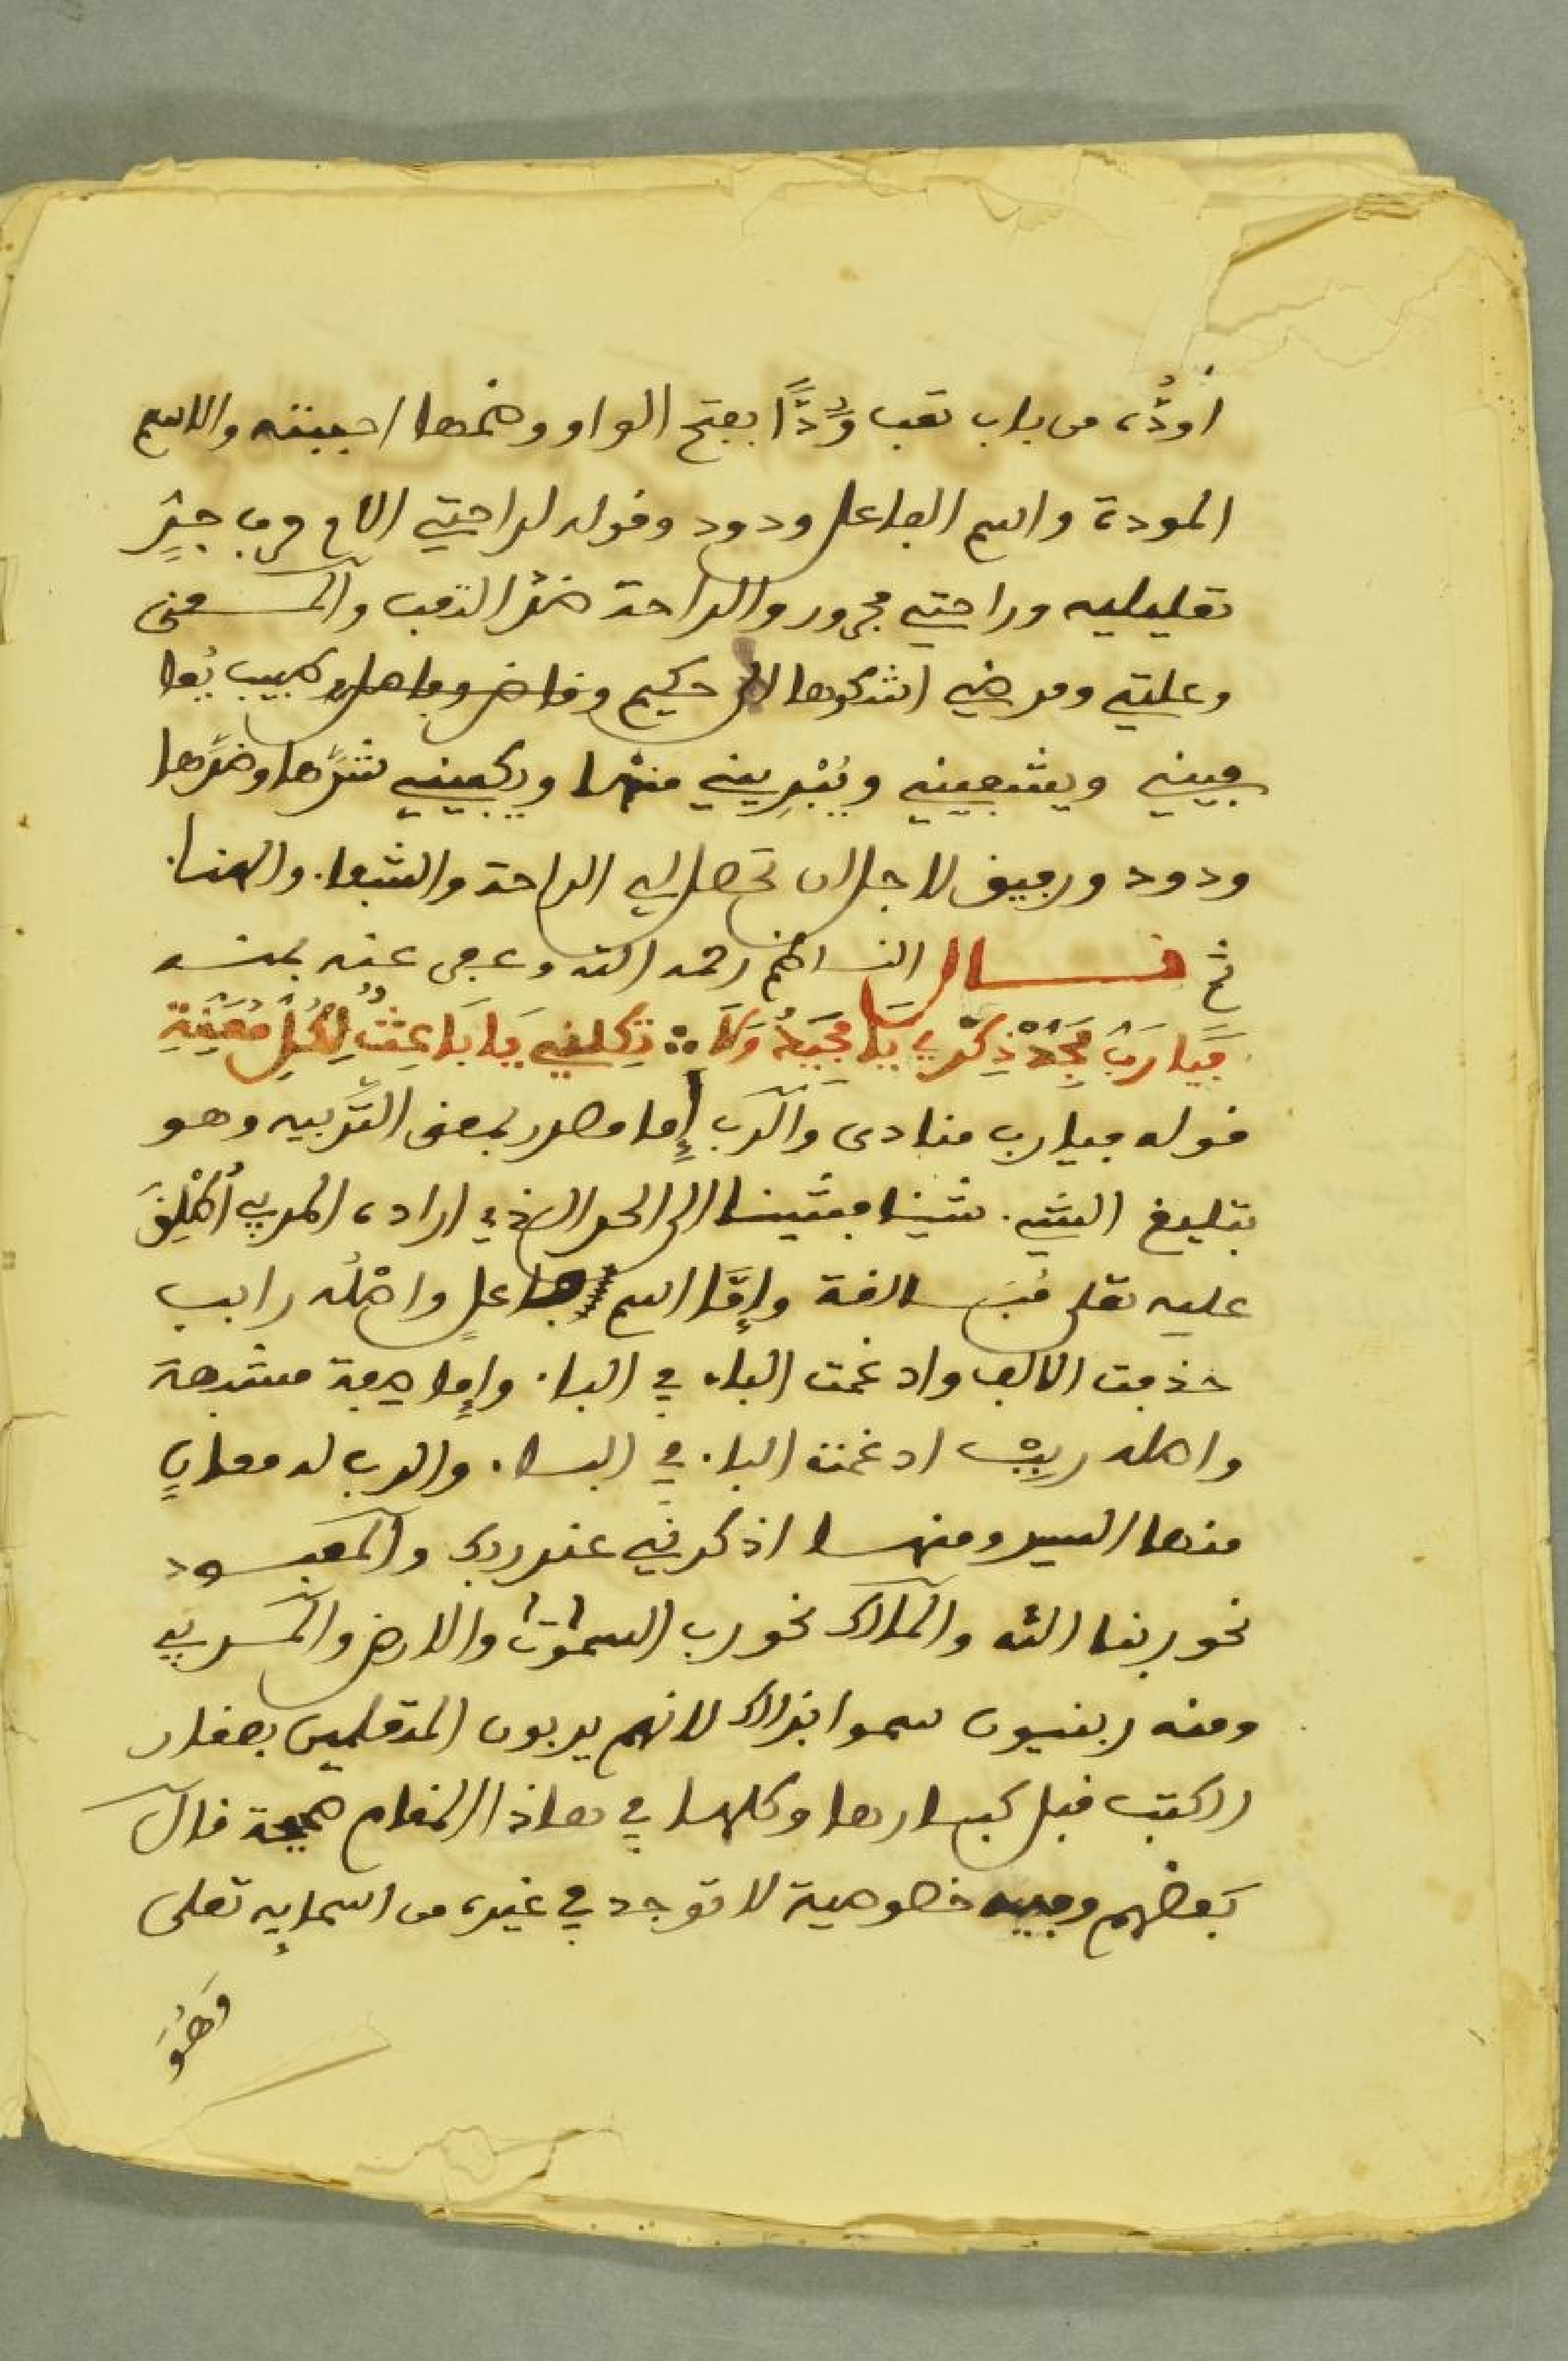 اودُّه من باب تعب وَُدًّا بفتح الواو وضمها احببته والاسم
المودة واسم الفاعل ودود وقوله لراحتي اللام حرف جرٍّ
تعليليه وراحتي مجرور والراحة ضدّ التعب والمعنى
وعلتي ومرضي اشكوها الى حكيم وفاضل وطبيب يُوا
فيني ويشفيني ويُبْرِيني منها ويكفيني شرّها وضرّها
ودود ورفيق لاجل ان تحصل لي الراحة والشفاء والهنا
ثم قال الناظم رحمه الله وعفى عنه بمنه
فيا رب مجّد ذكر يا مجيد ولا ∴ تكلني يا باعث لكل معينة
قوله فيارب منادى والرب إما مصدر بمعنى التَّربيه وهو
تبليغ الشيء شيئا فشيئا الى الحد الذي اراده المربي أُطْلِقَ
عليه تعلى مُبـالغة وإمَّا اسم فاعلٍ واصله رابب
حذفت الالف وادغمت الباء في الباء وإما صفة مشبهة
واصله ربب ادغمت الباء في الباء والرب له معانٍ
منها السيد ومنها اذكرني عند ربك والمعبود
نحو ربنا الله والمالك نحو رب السموت والارض والمربي
ومنه ربنيون سموا بذلك لانهم يربون المتعلمين بصغار
الكتب قبل كبارها وكلها في هاذا المقام صحيحة قال
بعضهم وفيه خصوصية لا توجد في غيره من اسمايه تعلى
وَهُوَ